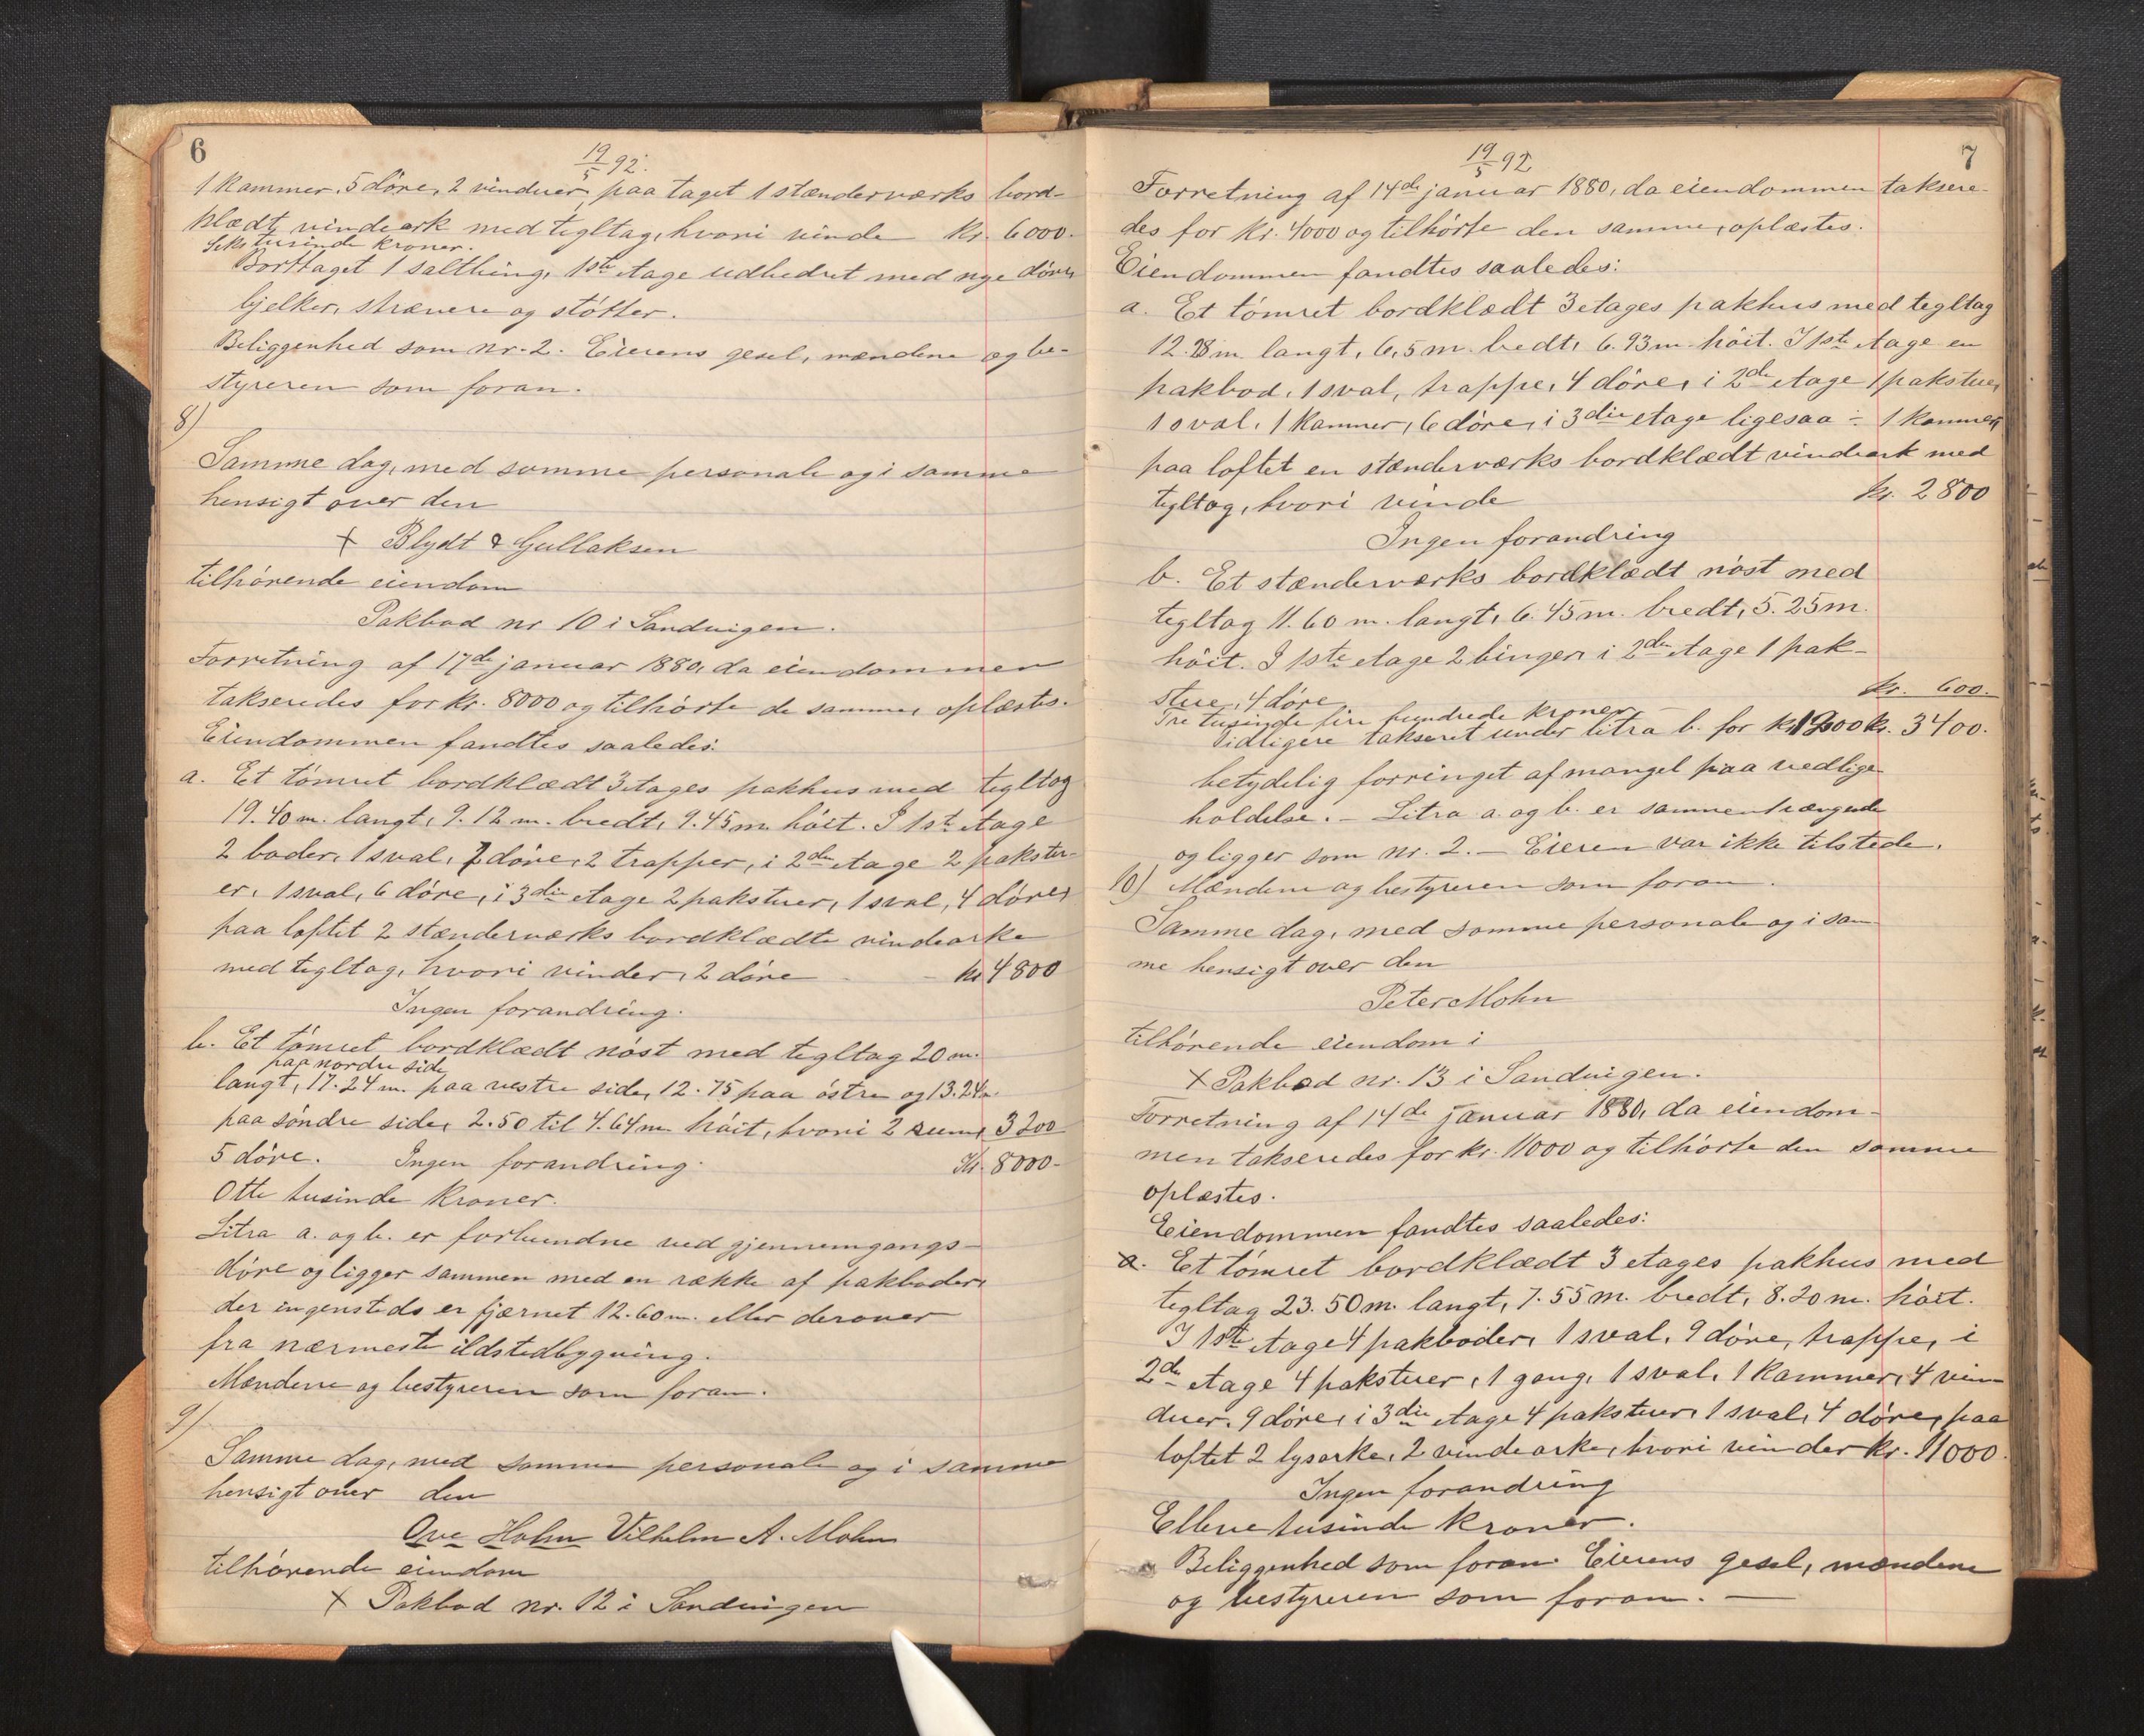 6
19/5 92.
1 kammer, 5 døre, 2 vinduer, paa taget 1 stænderværks bord-
klædt vindeark med tegltag, hvori vinde kr. 6000.
Seks tusinde kroner.
Borttaget 1 saltbing, 1ste etage udbedret med nye døre,
bjelker, strævere og støtter.
Beliggenhed som nr. 2. Eierens gesel, mændene og be-
styreren som foran.
8)
Samme dag, med samme personale og i samme
hensigt over den
+ Blydt & Gullaksen
tilhørende eiendom
Pakbod nr 10 i Sandvigen.
Forretning af 17de januar 1880, da eiendommen
takseredes for kr. 8000 og tilhørte de samme, oplæstes.
Eiendommen fandtes saaledes:
a. Et tømret bordklædt 3 etages pakhus med tegltag
19.40 m. langt, 9.12 m. bredt, 9.45 m høit. I 1ste etage
2 boder, 1 sval, 7 døre, 2 trapper, i 2den etage 2 pakstu-
er, 1 sval, 6 døre, i 3die etage 2 pakstuer, 1 sval, 4 døre,
paa loftet 2 stænderværks bordklædte vindearke
med tegltag, hvori vinder, 2 døre - kr 4800
Ingen forandring.
b. Et tømret bordklædt nøst med tegltag 20 m.
paa nordre side
langt, 17.24 m. paa vestre side, 12.75 paa østre og 13.24 m.
paa søndre side, 2.50 til 4.64 m høit, hvori 2 rum, 3200
5 døre. Ingen forandring. Kr. 8000-
Otte tusinde kroner.
Litra a. og b. er forbundne ved gjennemgangs-
døre og ligger sammen med en række af pakboder,
der ingensteds er fjærnet 12.60 m. eller derover
fra nærmeste ildstedbygning.
Mændene og bestyreren som foran.
9)
Samme dag, med samme personale og i samme
hensigt over den
Ove Holm Vilhelm A. Mohn
tilhørende eiendom
+ Pakbod nr. 12 i Sandvigen
7
19/5 92
Forretning af 14de januar 1880, da eiendommen taksere-
des for kr. 4000 og tilhørte den samme, oplæstes.
Eiendommen fandtes saaledes:
a. Et tømret bordklædt 3 etages pakhus med tegltag
12.28 m. langt, 6,5 m. bredt, 6.93 m. høit. I 1ste etage en
pakbod, 1 sval, trappe, 4 døre, i 2den etage 1 pakstue,
1 sval, 1 kammer, 6 døre, i 3die etage ligesaa ÷ 1 kammer,
paa loftet en stænderværks bordklædt vindeark med
tegltag, hvori vinde kr. 2800
Ingen forandring
b. Et stænderværks bordklædt nøst med
tegltag 11.60 m. langt, 6.45 m. bredt, 5.25 m.
høit. I 1ste etage 2 binger, i 2den etage 1 pak-
stue, 4 døre kr. 600.
Tre tusinde fire hundrede kroner - kr. 3400.
Tidligere takseret under litra b. for kr 1200
betydelig forringet af mangel paa vedlige-
holdelse. - Litra a. og b. er sammenhængende
og ligger som nr. 2. - Eieren var ikke tilstede.
10) Mændene og bestyreren som foran.
Samme dag, med samme personale og i sam-
me hensigt over den
Peter Mohn
tilhørende eiendom i
+ Pakbod nr. 13 i Sandvigen.
Forretning af 14de januar 1880, da eiendom-
men takseredes for kr. 11000 og tilhørte den samme
oplæstes.
Eiendommen fandtes saaledes:
a. Et tømret bordklædt 3 etages pakhus med
tegltag 23.50 m. langt, 7.55 m. bredt, 8.20 m. høit.
I 1ste etage 4 pakboder, 1 sval, 9 døre, trappe, i
2den etage 4 pakstuer, 1 gang, 1 sval, 1 kammer, 4 vin-
duer, 9 døre, i 3die etage 4 pakstuer, 1 sval, 4 døre, paa
loftet 2 lysarke, 2 vindearke, hvori vinder kr. 11000.
Ingen forandring
Elleve tusinde kroner.
Beliggenhed som foran. Eierens gesel, mændene
og bestyreren som foran. -